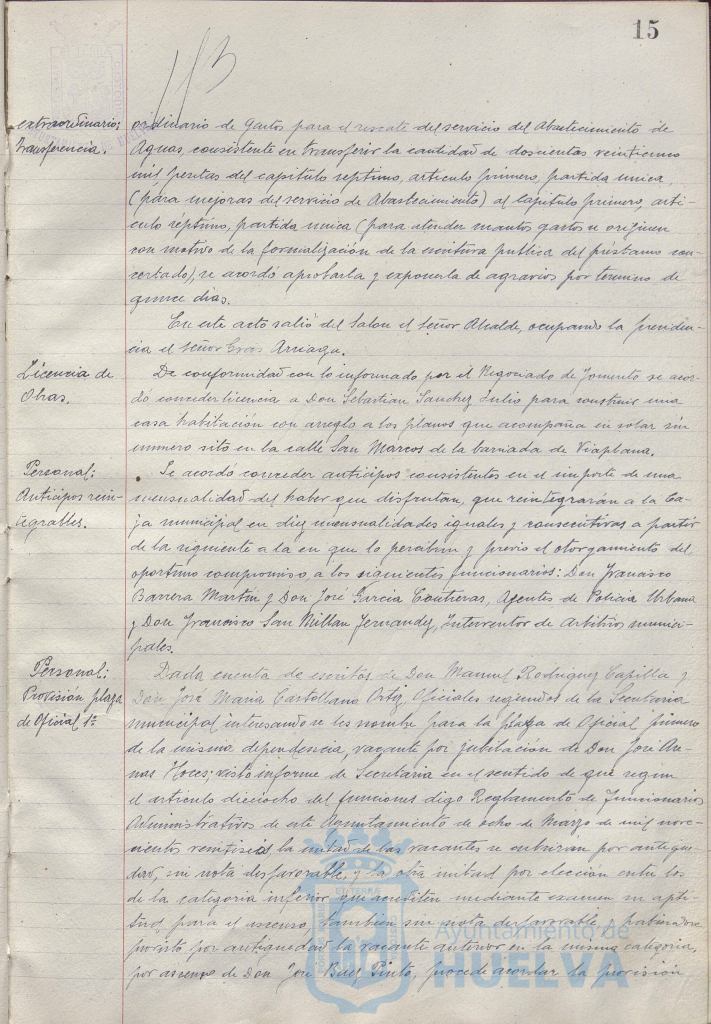 15
113
extraordinario;
transferencia.
ordinario de gastos para el rescate del servicio del Abastecimiento de
Aguas, consistente en transferir la cantidad de doscientas veinticinco
mil pesetas del capitulo septimo, articulo primero, partida unica,
(para mejoras del servicio de Abastecimiento) al capitulo primero, arti-
culo séptimo, partida unica (para atender cuantos gastos se originen
con motivo de la formalización de la escritura publica del préstamo con-
certado), se acordó aprobarla y exponerla de agravios por termino de
quince dias.
En este acto salió del Salon el señor Alcalde, ocupando la presiden-
cia el señor Gras Arriaga.
Licencia de
Obras.
De conformidad con lo informado por el Negociado de Fomento se acor-
dó conceder licencia a Don Sebastian Sanchez Julio para construir una
casa habitación con arreglo a los planos que acompaña en solar sin
numero sito en la calle San Marcos de la barriada de Viaplana.
Personal:
Anticipos rein-
tegrables.
Se acordó conceder anticipos consistentes en el importe de una
mensualidad del haber que disfrutan, que reintegrarán a la Ca-
ja municipal en diez mensualidades iguales y consecutivas a partir
de la siguiente a la en que lo perciban y previo el otorgamiento del
oportuno compromiso, a los siguientes funcionarios: Don Francisco
Barrera Martin y Don José Garcia Contreras, Agentes de Policia Urbana
y Don Francisco San Millan Fernandez, Interventor de Arbitrios munici-
pales.
Personal:
Provisión plaza
de Oficial 1º
Dada cuenta de escritos de Don Manuel Rodriguez Capilla y
Don José Maria Castellano Ortiz, Oficiales segundos de la Secretaria
municipal interesando se les nombre para la plaza de Oficial primero
de la misma dependencia, vacante por jubilación de Don José Are-
nas Hoces; visto informe de Secretaria en el sentido de que segun
el articulo dieciocho del funciones digo Reglamento de Funcionarios
Administrativos de este Ayuntamiento de ocho de Marzo de mil nove-
cientos veintiseis, la mitad de las vacantes se cubriran por antigue-
dad, sin nota desfavorable, y la otra mitad por elección entre los
de la categoria inferior que acrediten mediante examen su apti-
tud para el ascenso, tambien sin nota desfavorable y habiendose
provisto por antiguedad la vacante anterior en la misma categoria,
por ascenso de Don José Baez Pinto, procede acordar la provisión
Ayuntamiento de
HUELVA